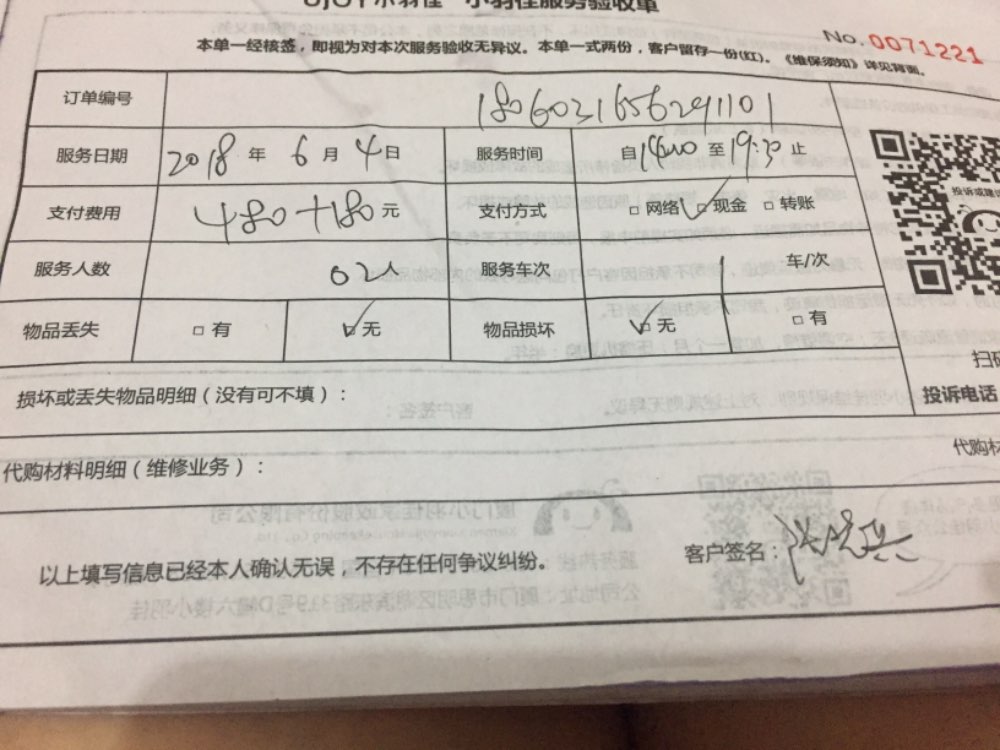 小羽佳服务验收单
No.0071221
本单一经核签，即视为对本次服务验收无异议。本单一式两份，客户留存一份(红)。《维保须知》详见背面。
订单编号 1806031656291101
服务日期 2018 年 6 月 4 日 服务时间 自 14:00 至 19:30 止
支付费用 480+180 元 支付方式 □ 网络 ☑ 现金 □ 转账
投诉或建议
服务人数 02 人 服务车次 1 车/次
物品丢失 □ 有 ☑ 无 物品损坏 ☑ 无 □ 有
扫码
损坏或丢失物品明细（没有可不填）：
投诉电话
代购材料明细（维修业务）：
代购材
以上填写信息已经本人确认无误，不存在任何争议纠纷。 客户签名：